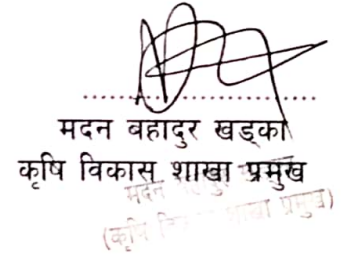 मदन बहादुर खड्का
कृषि विकास शाखा प्रमुख
मदन
(कृषि शाखा प्रमुख)